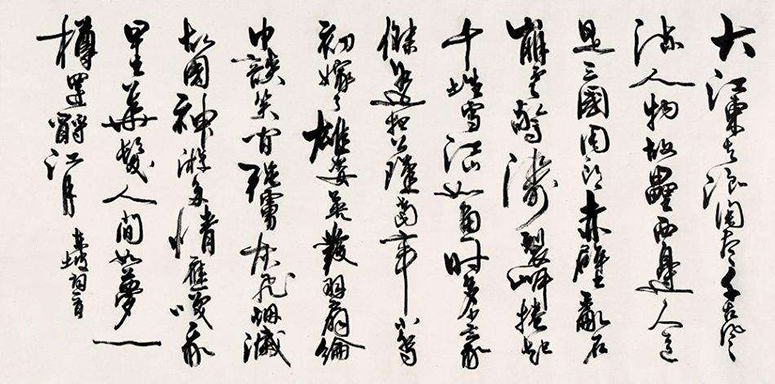 大江東去浪淘盡千古風
流人物故壘西邊人道
是三國周郎赤壁亂石
崩雲驚濤裂岸捲起
千堆雪江山如畫一時多少豪
傑遙想公瑾當年小喬
初嫁了雄姿英發羽扇綸
巾談笑間強虜灰飛烟滅
故國神游多情應笑我
早生華髮人間如夢一
樽還酹江月
東坡詞一首